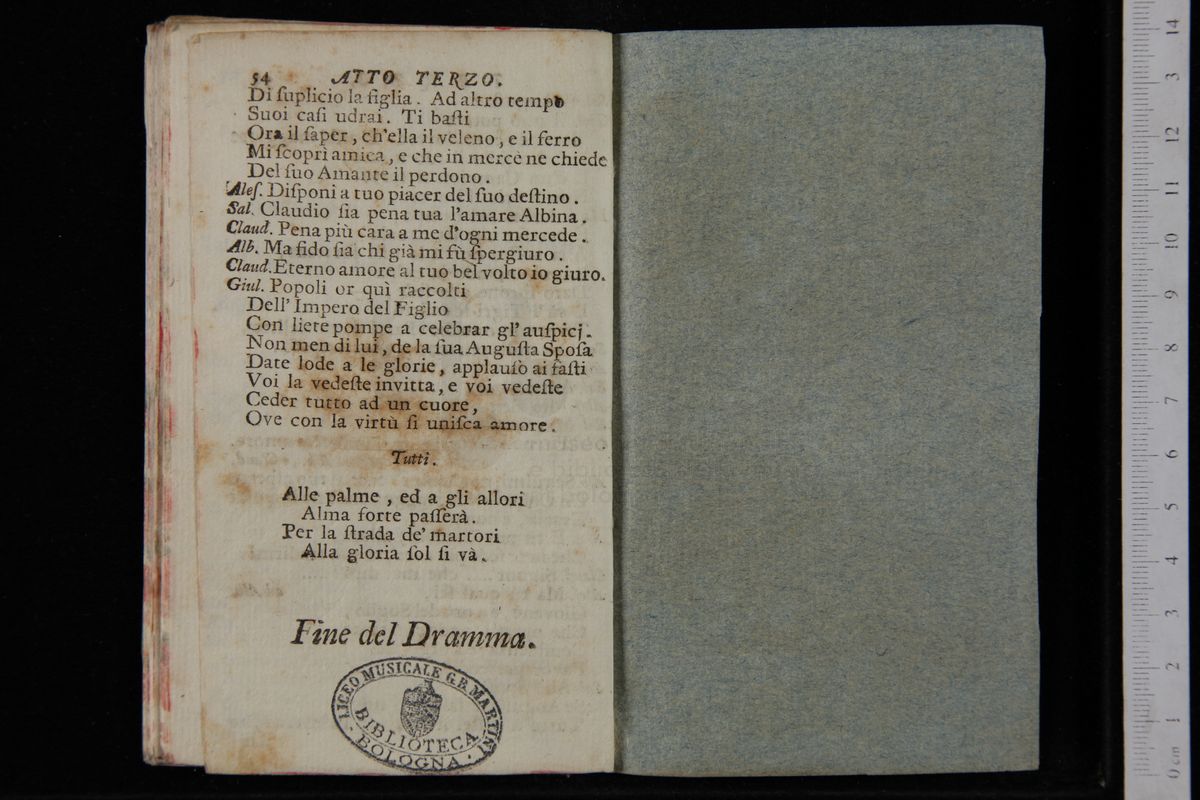 54 ATTO TERZO.
Di ſuplicio la figlia. Ad altro tempo
Suoi caſi udrai. Ti baſti
Ora il ſaper, ch'ella il veleno, e il ferro
Mi ſcoprì amica, e che in merce ne chiede
Del ſuo Amante il perdono.
Aleſ. Diſponi a tuo piacer del ſuo deſtino.
Sal. Claudio ſia pena tua l'amare Albina.
Claud. Pena più cara a me d'ogni mercede.
Alb. Ma fido ſia chi già mi fù ſpergiuro.
Claud. Eterno amore al tuo bel volto io giuro.
Giul. Popoli or quì raccolti
Dell' Impero del Figlio
Con liete pompe a celebrar gl' auſpicj.
Non men di lui, de la ſua Auguſta Spoſa
Date lode a le glorie, applauſo ai faſti
Voi la vedeſte invitta, e voi vedeſte
Ceder tutto ad un cuore,
Ove con la virtù ſi uniſca amore.
Tutti.
Alle palme, ed a gli allori
Alma forte paſſerà.
Per la ſtrada de' martori
Alla gloria ſol ſi và.
Fine del Dramma.
LICEO MUSICALE G.B. MARTINI
BIBLIOTECA
BOLOGNA
14
3
12
11
10
9
8
7
6
5
4
3
2
1
0 cm